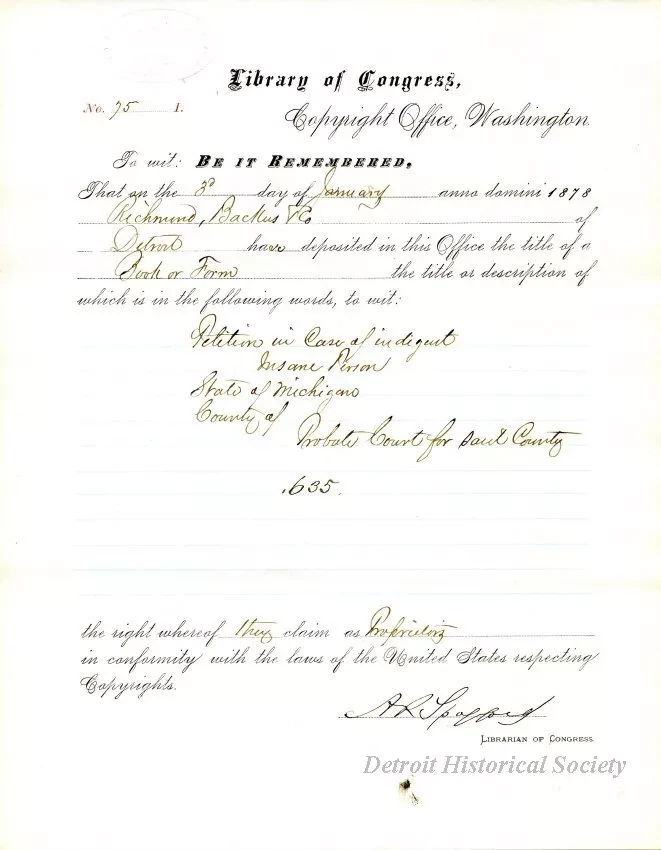 Library of Congress,
No. 75 I.
Copyright Office, Washington.
To wit: BE IT REMEMBERED,
That on the 3d day of January anno domini 1878
Richmond, Backus & Co of
Detroit have deposited in this Office the title of a
Book or Form the title or description of
which is in the following words, to wit:
Petition in Case of indigent
Insane Person
State of Michigan
County of
Probate Court for said County
.635.
the right whereof they claim as Proprietors
in conformity with the laws of the United States respecting
Copyrights.
A R Spofford
LIBRARIAN OF CONGRESS.
Detroit Historical Society